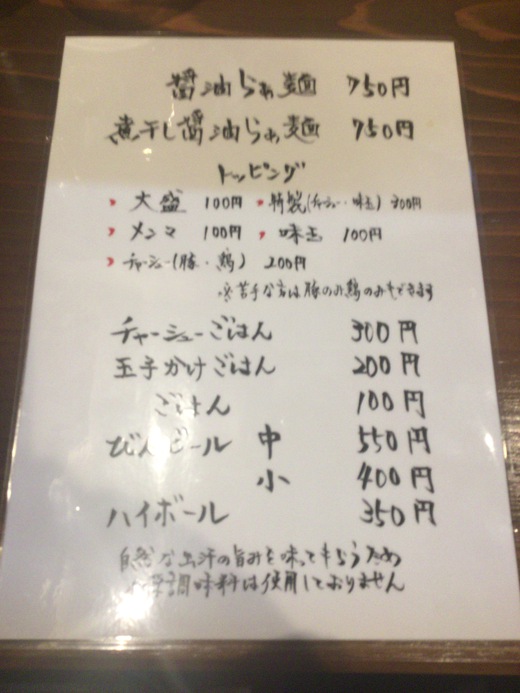 醤油らぁ麺 750円
煮干し醤油らぁ麺 750円
トッピング
大盛 100円 特製(チャーシュー・味玉) 300円
メンマ 100円 味玉 100円
チャーシュー(豚・鶏) 200円
※苦手な方は豚のみ鶏のみもできます
チャーシューごはん 300円
玉子かけごはん 200円
ごはん 100円
びんビール 中 550円
小 400円
ハイボール 350円
自然な出汁の旨みを味ってもらうため
化学調味料は使用しておりません